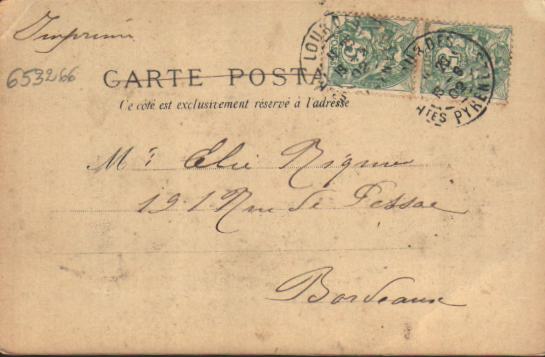 Imprimé
653266
CARTE POSTALE
Ce côté est exclusivement réservé à l'adresse
LOURDES
LOURDES
HTES PYRÉNÉES
Mr Elie
191 Rue de Pessac
Bordeaux